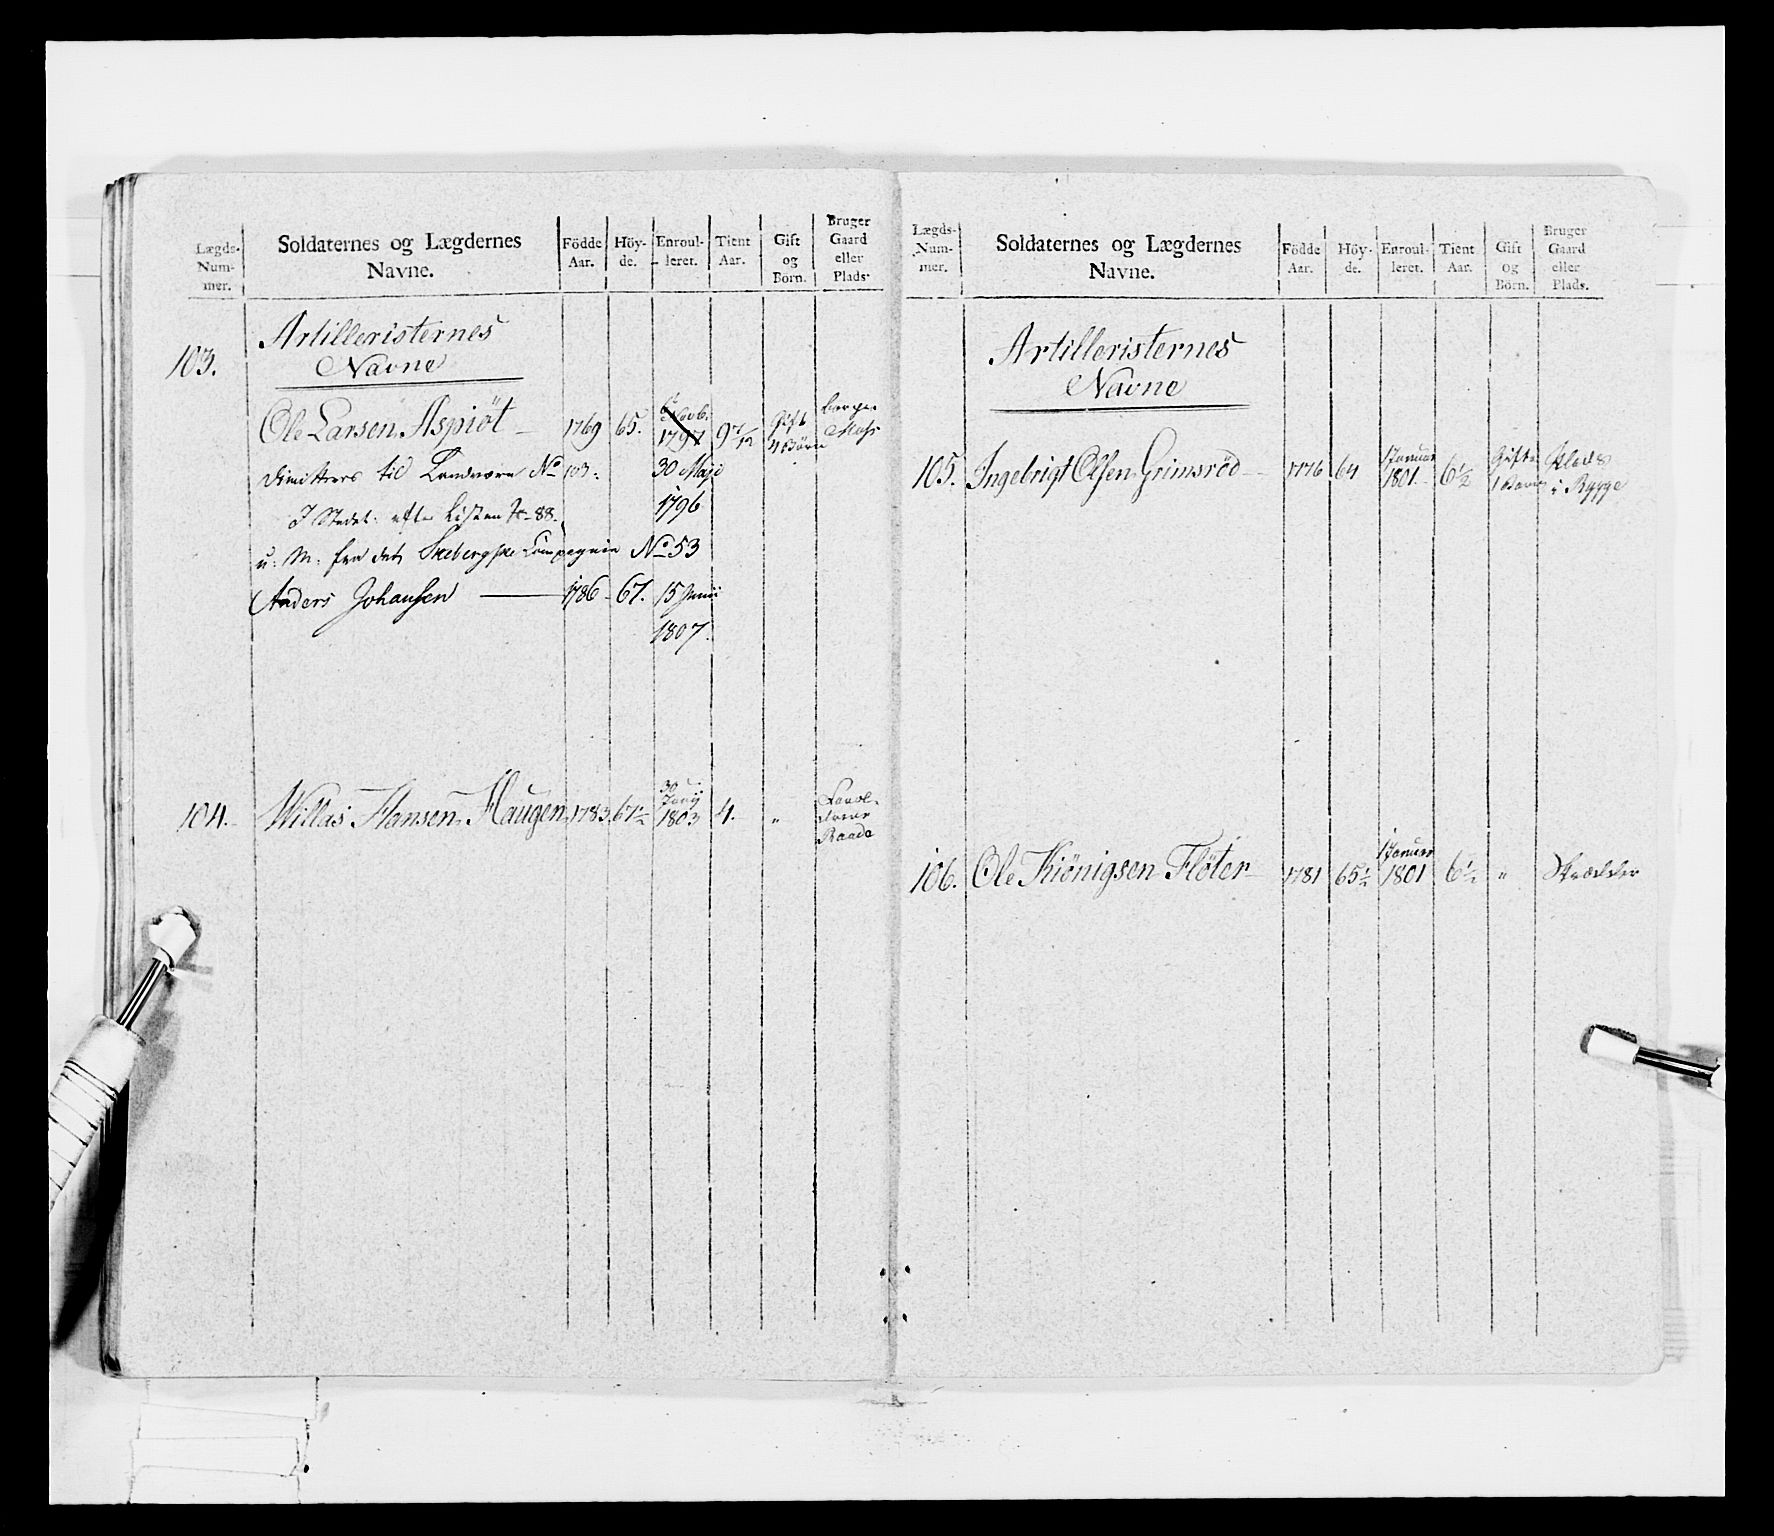 Lægds-Num-mer. Soldaternes og Lægdernes Navne. Födde Aar. Höy-de. Enroul-leret. Tient Aar. Gift og Börn. Bruger Gaard eller Plads.
Artilleristernes
103. Navne
6 Novb.
Ole Larsen Aspiöt 1769 65. 1797 9 7/12 Gift 4 Börn Moss
dimitteres til Landværn No 103. 30 Maji
I Stedet efter Listen No 88. 1796
u. M. fra det Compagnie No 53
Anders Johansen 1786 67. 15 Junii
1807.
30 Junij
104. Willas Hansen Haugen 1783. 67 1/2 1803 4. "
Raade
Lægds-Num-mer. Soldaternes og Lægdernes Navne. Födde Aar. Höy-de. Enroul-leret. Tient Aar. Gift og Börn. Bruger Gaard eller Plads.
Artilleristernes
Navne
1 Januar
105. Ingebrigt Olsen Grimsröd 1776 64 1801. 6 1/2 Gift 1 Barn Plads i Rygge
1 Januar
106. Ole Kiönigsen Flöter 1781 65 1/2 1801 6 1/2 " Skrædder